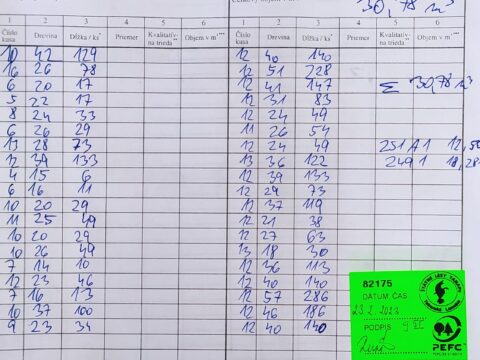 30,78 m³
1 2 3 4 5 6
Číslo kusa Drevina Dĺžka / ks Priemer Kvalitatívna trieda Objem v m
10 42 129
16 26 78
6 20 17
5 22 17
8 24 33
6 26 29
13 28 73
12 39 133
4 15 6
6 16 11
10 20 29
11 25 49
10 20 29
10 26 49
7 14 10
12 23 46
7 16 13
10 37 100
9 23 34
1 2 3 4 5 6
Číslo kusa Drevina Dĺžka / ks Priemer Kvalitatívna trieda Objem v m
12 40 140
12 51 228
12 41 147 Σ 30,78 m³
12 31 83
12 24 49
11 26 54
12 24 49 251 A1
13 36 122 249 1
12 39 133
12 29 73
12 37 119
12 21 38
12 27 63
13 18 30
12 36 113
12 40 140
12 57 286
12 46 186
12 40 140
82175
DATUM ČAS
23.2.2023
PODPIS
PEFC